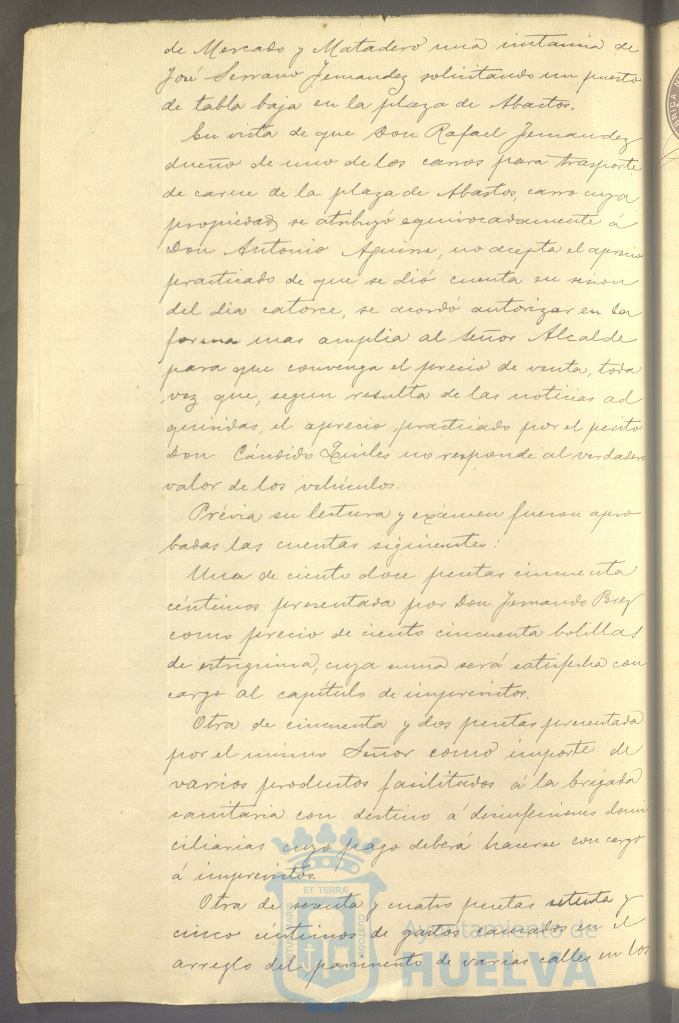 de Mercado y Matadero una instancia de
José Serrano Fernandez solicitando un puesto
de tabla baja en la plaza de Abastos.
En vista de que Don Rafael Fernandez
dueño de uno de los carros para trasporte
de carne de la plaza de Abastos, carro cuya
propiedad se atribuyó equivocadamente á
Don Antonio Aguirre, no acepta el aprecio
practicado de que se dió cuenta en sesion
del dia catorce, se acordó autorizar en la
forma mas amplia al Señor Alcalde
para que convenga el precio de venta, toda
vez que, segun resulta de las noticias ad
quiridas, el aprecio practicado por el perito
Don Cándido Quiles no responde al verdadero
valor de los vehículos.
Prévia su lectura y exámen fueron apro
badas las cuentas siguientes:
Una de ciento doce pesetas cincuenta
céntimos presentada por Don Fernando Perez
como precio de ciento cincuenta bolillas
de estrignina, cuya suma será satisfecha con
cargo al capítulo de imprevistos.
Otra de cincuenta y dos pesetas presentada
por el mismo Señor como importe de
varios productos facilitados á la brigada
sanitaria con destino á desinfecciones domi
ciliarias cuyo pago deberá hacerse con cargo
á imprevistos.
Otra de sesenta y cuatro pesetas setenta y
cinco céntimos de gastos causados en el
arreglo del pavimento de varias calles en los
ET TERRÆ
CUSTODIA
Ayuntamiento de
HUELVA